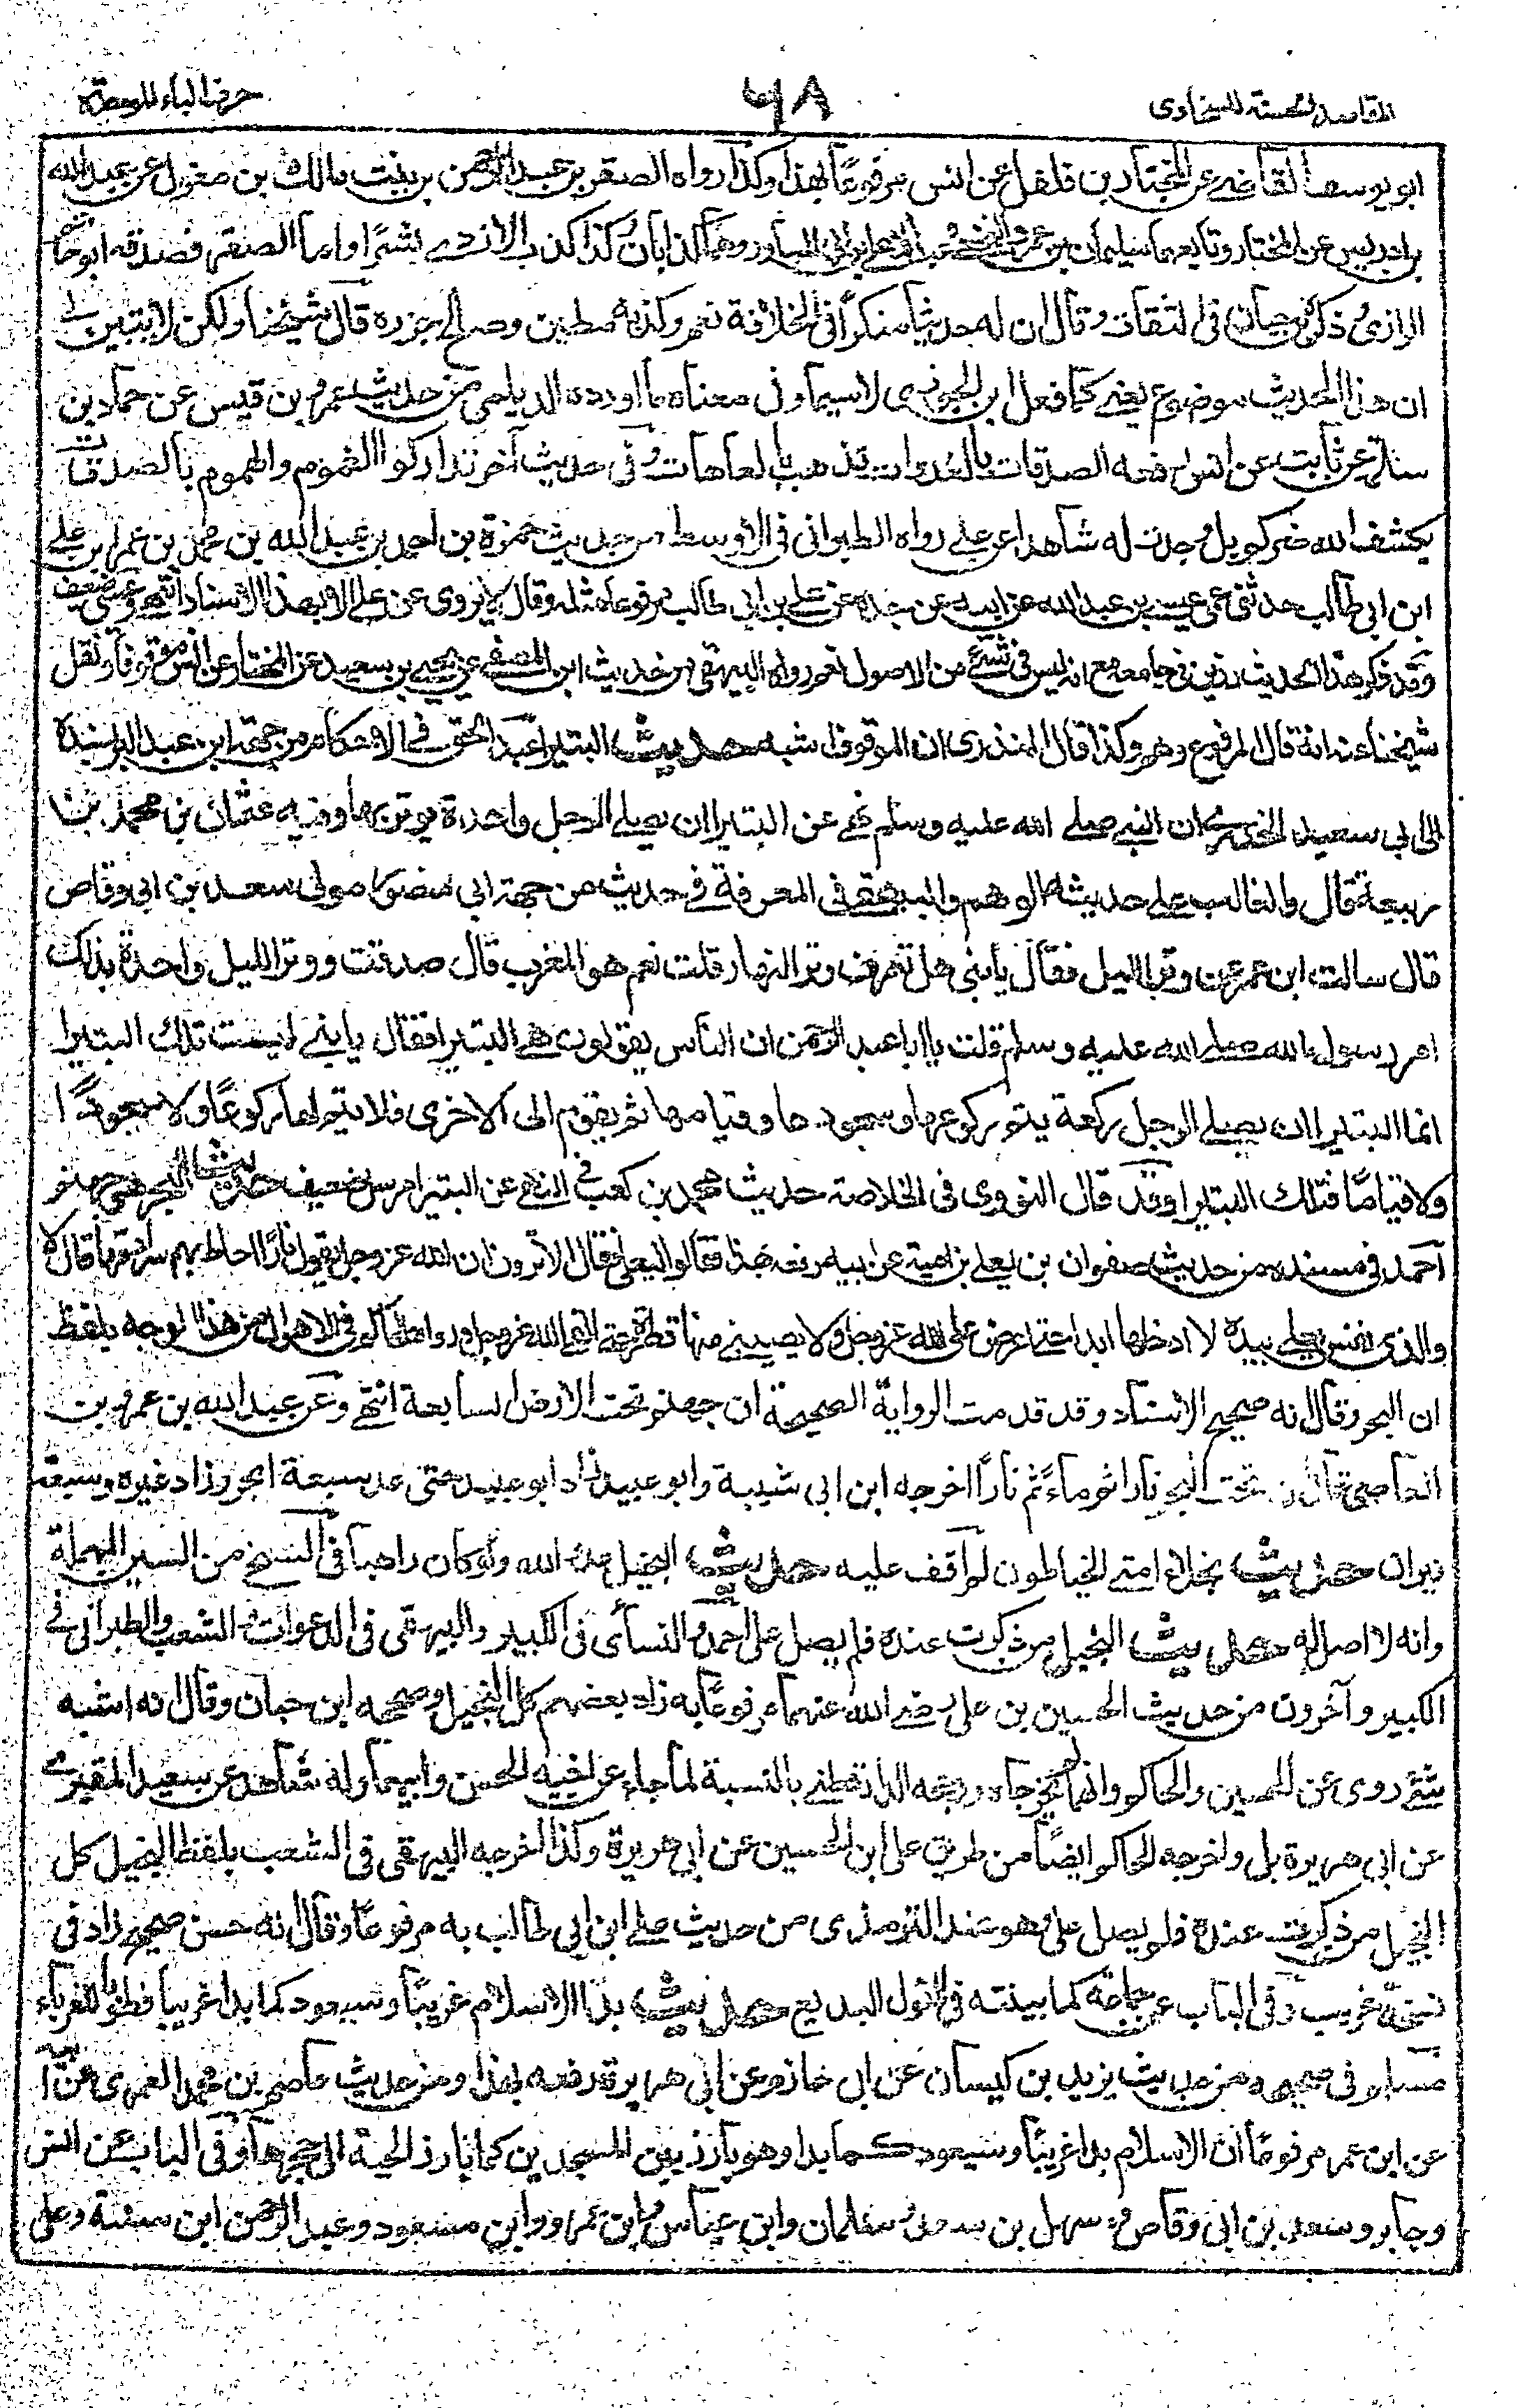 المقاصد الحسنة للسخاوى
٦٨
حرف الباء الموحدة
ابو يوسف القاضى عن المختار بن فلفل عن انس مرفوعاً بهذا وكذا رواه الصقر بن عبد الرحمن بن بنت مالك بن مغول عن عبد الله
بن ادريس عن المختار وتابعهما سليمان بن عمرو النخعى وهما كذابان كذا كذب الازدى بشراً واما الصقر فصدقه ابو حاتم
الرازى وذكره ابن حبان فى الثقات وقال ان له حديثا منكراً فى الخلافة نعم وكذبه مطين وصالح جزرة قال شيخنا ولكن لا يتبين لى
ان هذا الحديث موضوع يعنى كما فعل ابن الجوزى لاسيما وفى معناه ما اورده الديلمى من حديث عمرو بن قيس عن حماد بن
سلمة عن ثابت عن انس رفعه الصدقات بالغدوات تذهب بالعاهات وفى حديث آخر تداركوا الغموم والهموم بالصدقات
يكشف الله ضركم بل وجدت له شاهدا عن على رواه الطبرانى فى الاوسط من حديث حمزة بن احمد بن عبد الله بن محمد بن عمر ابن على
ابن ابى طالب حدثنى عمى عيسى بن عبد الله عن ابيه عن جده عن على بن ابى طالب مرفوعا مثله وقال لا يروى عن على الا بهذا الاسناد انتهى وعيسى ضعيف
وقد ذكر هذا الحديث رزين فى جامعه مع انه ليس فى شئ من الاصول نعم رواه البيهقى من حديث ابن المصفى عن يحيى بن سعيد عن المختار عن انس موقوفا ونقل
شيخنا عنه انه قال المرفوع وهم وكذا قال المنذرى ان الموقوف اشبه حديث البتيرا عبد الحق فى الاحكام من جهة ابن عبد البر بسنده
الى ابى سعيد الخدرى ان النبى صلى الله عليه وسلم نهى عن البتيرا ان يصلى الرجل واحدة يوتر بها وفيه عثمان بن محمد بن
ربيعة قال والغالب على حديثه الوهم والبيهقى فى المعرفة فى حديث من جهة ابى منصور مولى سعد بن ابى وقاص
قال سالت ابن عمر عن وتر الليل فقال يا بنى هل تعرف وتر النهار قلت نعم هو المغرب قال صدقت ووتر الليل واحدة بذلك
امر رسول الله صلى الله عليه وسلم قلت يا ابا عبد الرحمن ان الناس يقولون هى البتيرا فقال يا بنى ليست تلك البتيرا
انما البتيرا ان يصلى الرجل ركعة يتم ركوعها وسجودها وقيامها ثم يقوم الى الاخرى فلا يتم لها ركوعاً ولا سجوداً
ولا قياماً فتلك البتيرا وقد قال النووى فى الخلاصة حديث محمد بن كعب فى النهى عن البتيرا مرسل ضعيف حديث البحر هو جهنم
احمد فى مسنده من حديث صفوان بن يعلى بن امية عن ابيه رفعه بهذا فقالوا ليعلى فقال الا ترون ان الله عز وجل يقول نارًا احاط بهم سرادقها قال لا
والذى نفس يعلى بيده لا ادخلها ابدا حتى اعرض على الله عز وجل ولا يصيبنى منها قطرة حتى القى الله عز وجل ورواه الحاكم فى الاهوال من هذا الوجه بلفظ
ان البحر وقال انه صحيح الاسناد وقد قدمت الرواية الصحيحة ان جهنم تحت الارض السابعة انتهى وعن عبد الله بن عمرو بن
العاصى قال ان تحت البحر نارا ثم ماءً ثم نارًا اخرجه ابن ابى شيبة وابو عبيد زاد ابو عبيد حتى عد سبعة ابحر زاد غيره وسبعة
نيران حديث بخلاء امتى الخياطون لم اقف عليه حديث البخيل عدو الله ولو كان راهبا فى النسخ من السين المهملة
وانه لا اصل له حديث البخيل من ذكرت عنده فلم يصل على احمد والنسائى فى الكبير والبيهقى فى الدعوات والشعب والطبرانى فى
الكبير وآخرون من حديث الحسين بن على رضى الله عنهما مرفوعًا به زاد بعضهم كل البخيل وصححه ابن حبان وقال انه اشبه
شئ روى عن الحسين والحاكم وانهما لم يخرجاه ورجحه الدارقطنى بالنسبة لما جاء عن اخيه الحسن وابيهما وله شاهد عن سعيد المقبرى
عن ابى هريرة بل واخرجه الحاكم ايضاً من طريق على ابن الحسين عن ابى هريرة وكذا اخرجه البيهقى فى الشعب بلفظ البخيل كل
البخيل من ذكرت عنده فلم يصل على وهو عند الترمذى من حديث على ابن ابى طالب به مرفوعًا وقال انه حسن صحيح زاد فى
نسخة غريب وفى الباب عن جماعة كما بينته فى القول البديع حديث بدأ الاسلام غريبًا وسيعود كما بدا غريبا فطوبى للغرباء
مسلم فى صحيحه من حديث يزيد بن كيسان عن ابى حازم عن ابى هريرة رفعه بهذا ومن حديث عاصم بن محمد العمرى عن ابيه
عن ابن عمر مرفوعًا ان الاسلام بدا غريبًا وسيعود كما بدا وهو يأرز بين المسجدين كما تارز الحية الى جحرها وفى الباب عن انس
وجابر وسعد بن ابى وقاص وسهل بن سعد وسلمان وابن عباس وابن عمرو وابن مسعود وعبد الرحمن ابن سنة وعلى